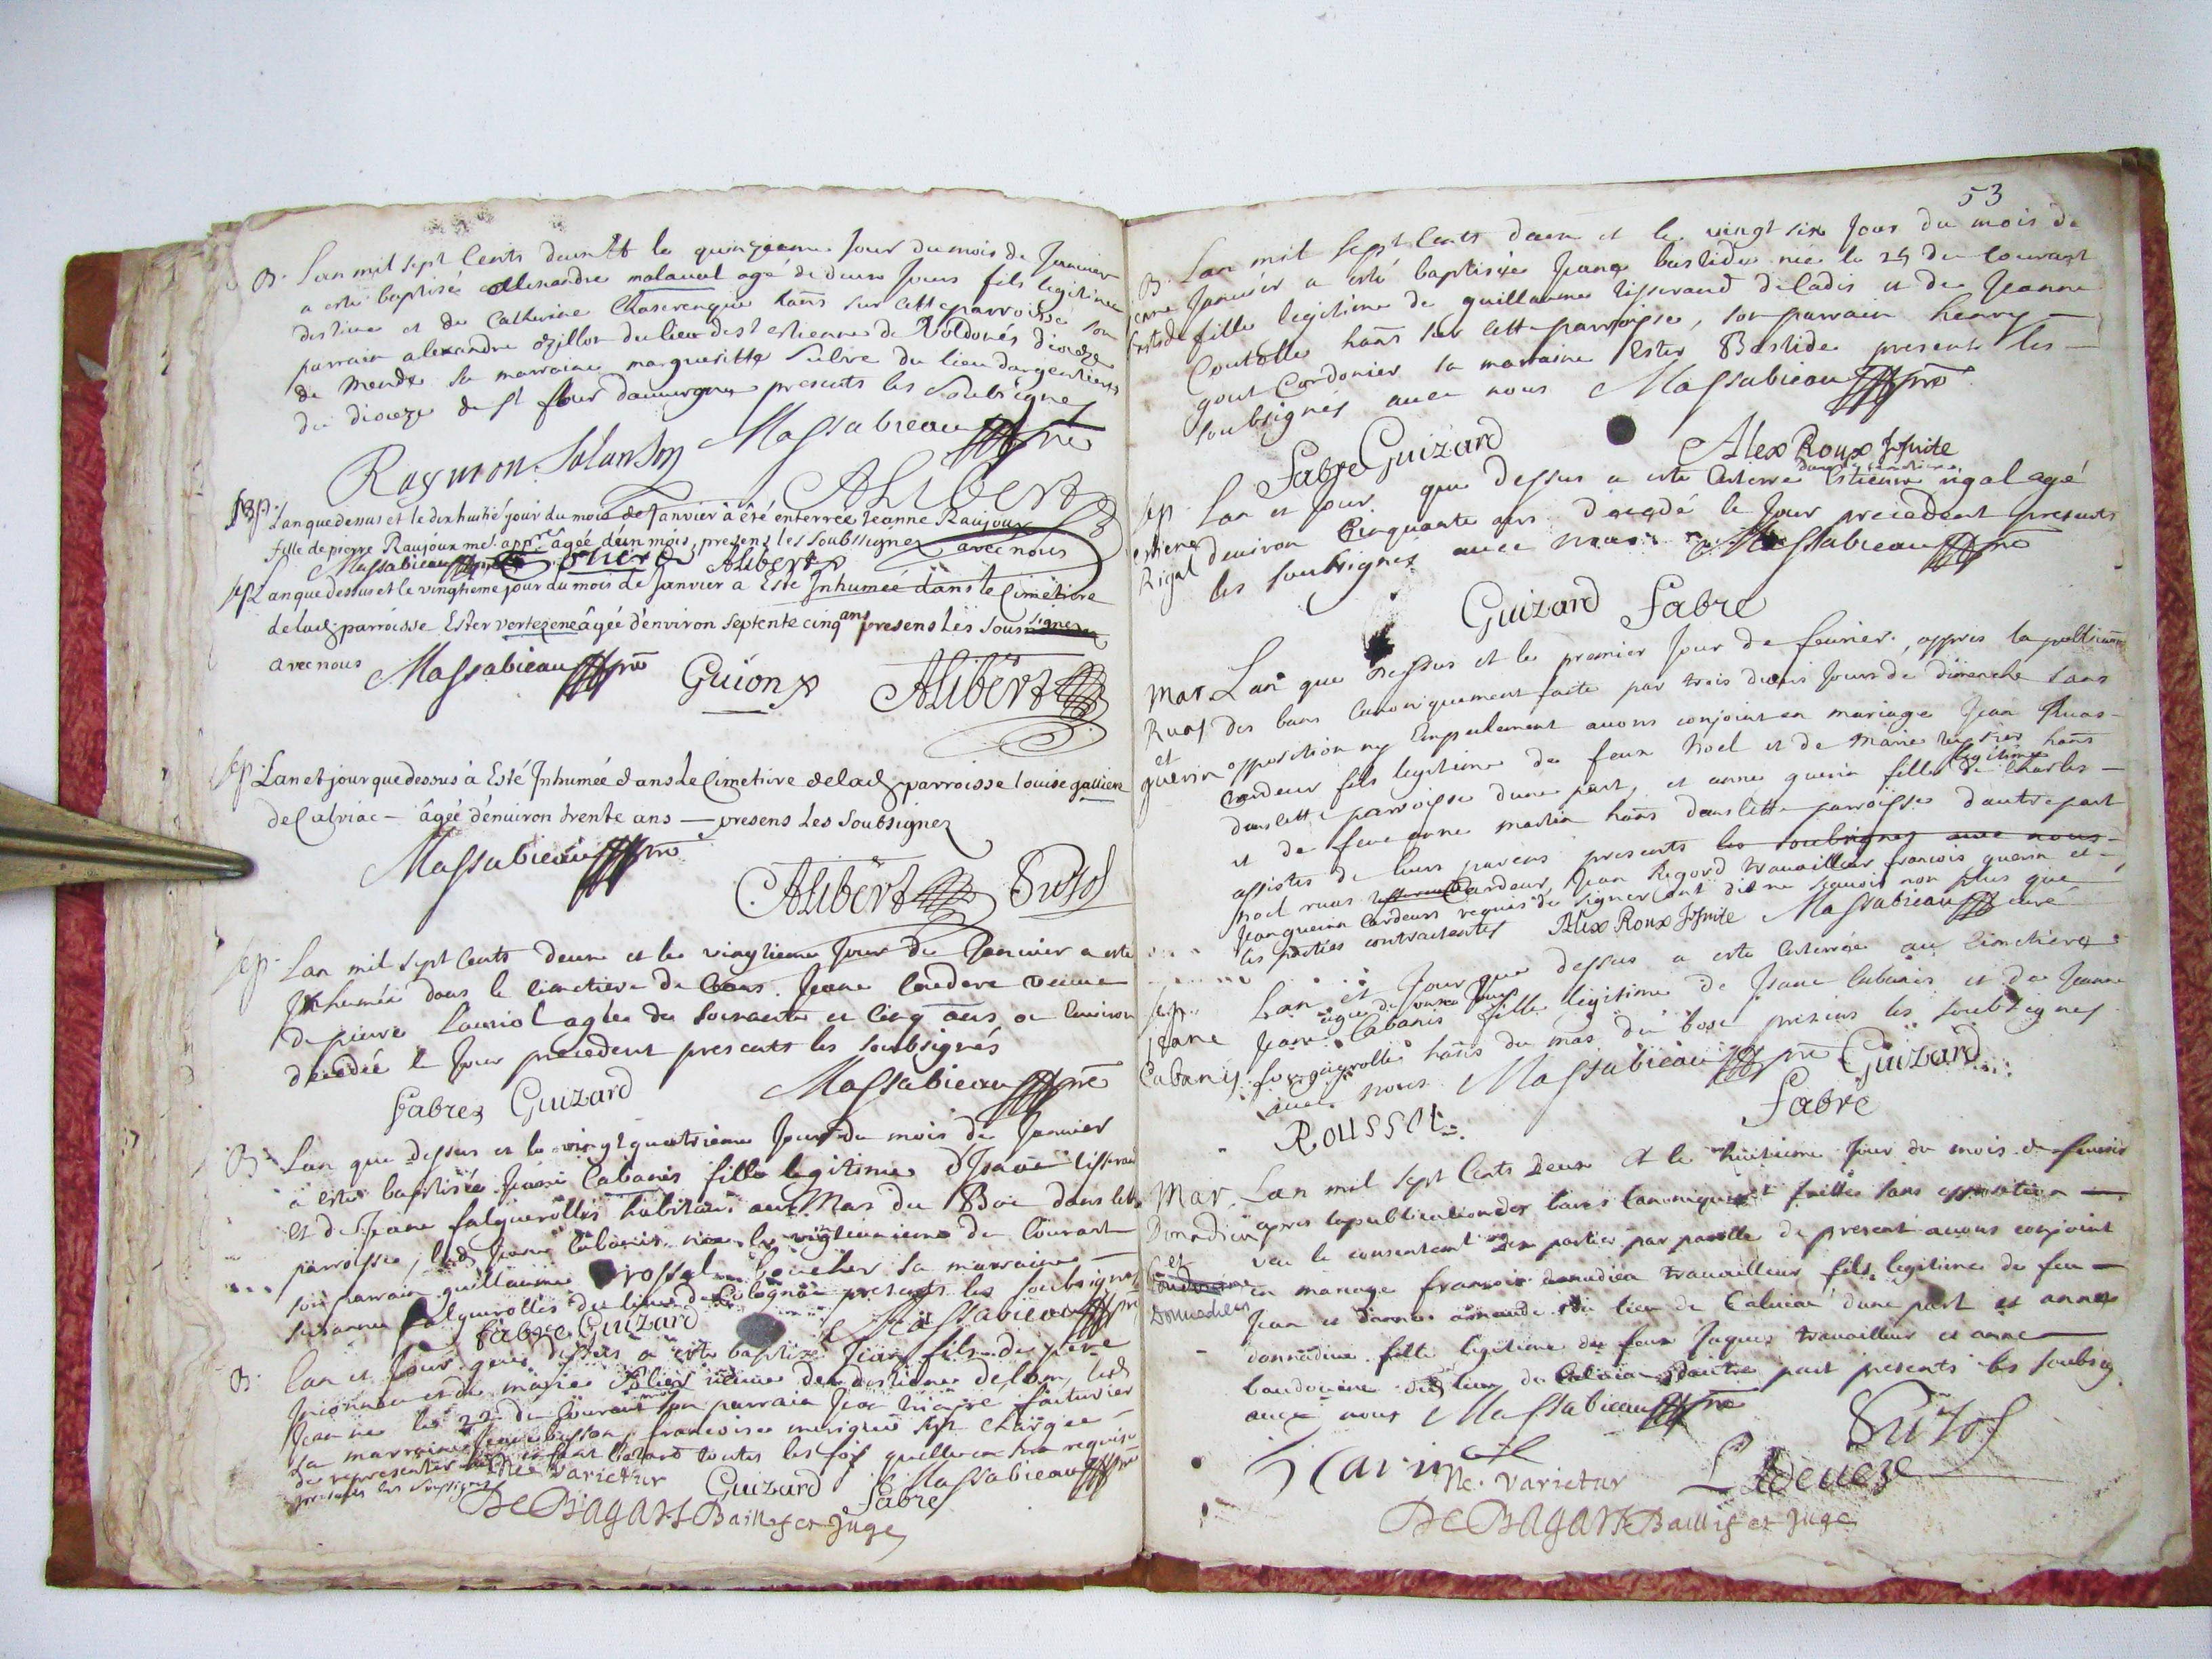 B. Lan mil sept cents deux et le quinzieme jour du mois de Janvier
a esté baptisé allexandre malaval agé de deux jours fils legitime
destiene et de Catherine Chaserenque hans sur cette parroisse son
parrain alexandre ozillon du lieu de st estienne de Valdonés dioceze
de Mende sa marraine margueritte Salire du lieu dargentiere
du dioceze de st flour dauvergne presents les soubsignes
Massabieau pre
Alibert
Sep. Lan que dessus et le dix huitié jour du mois de Janvier à été enterrée Jeanne Raujoux
fille de pierre Raujoux âgée dun mois, presens les soubssignez avec nous
Massabieau Alibert
sep Lan que dessus et le vingtieme jour du mois de Janvier a Esté Inhumeé dans le Cimetiere
de lad parroisse Ester vertezene âgée dénviron septente cinq ans presens les sousignez
avec nous Massabieau pre Guion Alibert
sep. Lan et jour que dessus à Esté Inhumée dans le Cimetiere de lad parroisse louise galliere
de Calviac - âgée dénviron trente ans - presens les soubsignez
Massabieau pre
Alibert Pusol
sep. Lan mil sept cents deux et le vingtieme jour du Janvier a esté
Inhumée dans le cimetiere de ceans Jeane loudere veuve
de pierre Lauriol agée de soixante et cinq ans ou environ
decedée le jour precedent presents les soubsignés
Fabre Guizard Massabieau pre
B. Lan que dessus et le vingt quatrieme jour du mois de Janvier
a esté baptisée Jeane Cabanis fille legitime dIsave tisserand
et de Jeane falguerolles habitans au Mas du Bos dans cette
parroisse, lad Jeane Cabanis née le vigtunieme du Courant
son parrain guillaume Brossel boucher sa marraine
suzanne falguerolles du lieu de Colognac presents les soubsignés
Fabre Guizard Massabieau pre
B. Lan et jour que dessus a esté baptisé Jean fils de pere
Inconnu et de marie veuve de
Jean né le 22 du Courant son parrain Jean
sa marraine francoise sest chargée
de representer led enfant batard toutes les fois quelle en sera requise
presents les soussignés Ne varietur Guizard Fabre Massabieau pre
De Bagars Baillif et Juge
53
B. Lan mil sept cents deux et le vingt six jour du mois de
Jeane Janvier a esté baptisée Jeane bastide née le 25 du courant
bastide fille legitime de guillaume tisserand de Cadis et de Jeanne
Coutelle hans sur cette parroisse, son parrain henry
gout Cordonier sa marraine Ester Bastide presents les
soubsignés avec nous Massabieau pre
Fabre Guizard Alex Roux Jesuite
sep Lan et jour que dessus a esté enterré dans le cimetiere Estienne rigal agé
estiene denviron cinquante ans decedé le jour precedent presents
Rigal les soubsignés avec nous Massabieau pre
Guizard Fabre
Mar Lan que dessus et le premier jour de fevrier, appres la publication
Ruas des bans canoniquement faite par trois divers jours de dimenche sans
et opposition ny Empechement avons conjoint en mariage Jean Ruas
guerin cardeur fils legitime de feux Noel et de Marie hans
dans cette parroisse dune part, et anne guerin fille legitime de Charles
et de feue anne martin hans dans cette parroisse dautre part
assistés de leurs parens presents les soubsignez avec nous
Noel ruas cardeur, Jean Rigord travailleur francois guerin et
Jean guerin Cardeurs requis de signer ont dit ne scavoir non plus que
les parties contractantes Alex Roux Jesuite Massabieau curé
sep. Lan et jour que dessus a esté enterrée au cimetiere
Jeane Jeane Cabanis agée de onze jours fille legitime de Isaac Cabanis et de Jeanne
Cabanis falguerolles hans du mas du bosc presens les soubsignes
avec nous Massabieau pre Guizard
ROUSSEL Fabre
Mar Lan mil sept cents deux et le huitieme jour du mois de fevrier
Donnadieu apres la publication des bans canoniquemt faittes sans opposition
et veu le consentemt des parties par parolle de present avons conjoint
Donnadieu en mariage francois donnadieu travailleur fils legitime de feu
Jean et danne arnaude du lieu de Calviac dune part et anne
donnadieu fille legitime de feux Jaques travailleur et anne
baudouine dud lieu de Calviac dautre part presents les soubsig
avec nous Massabieau pre
Pusol
Ne varietur
De Bagars Baillif et Juge